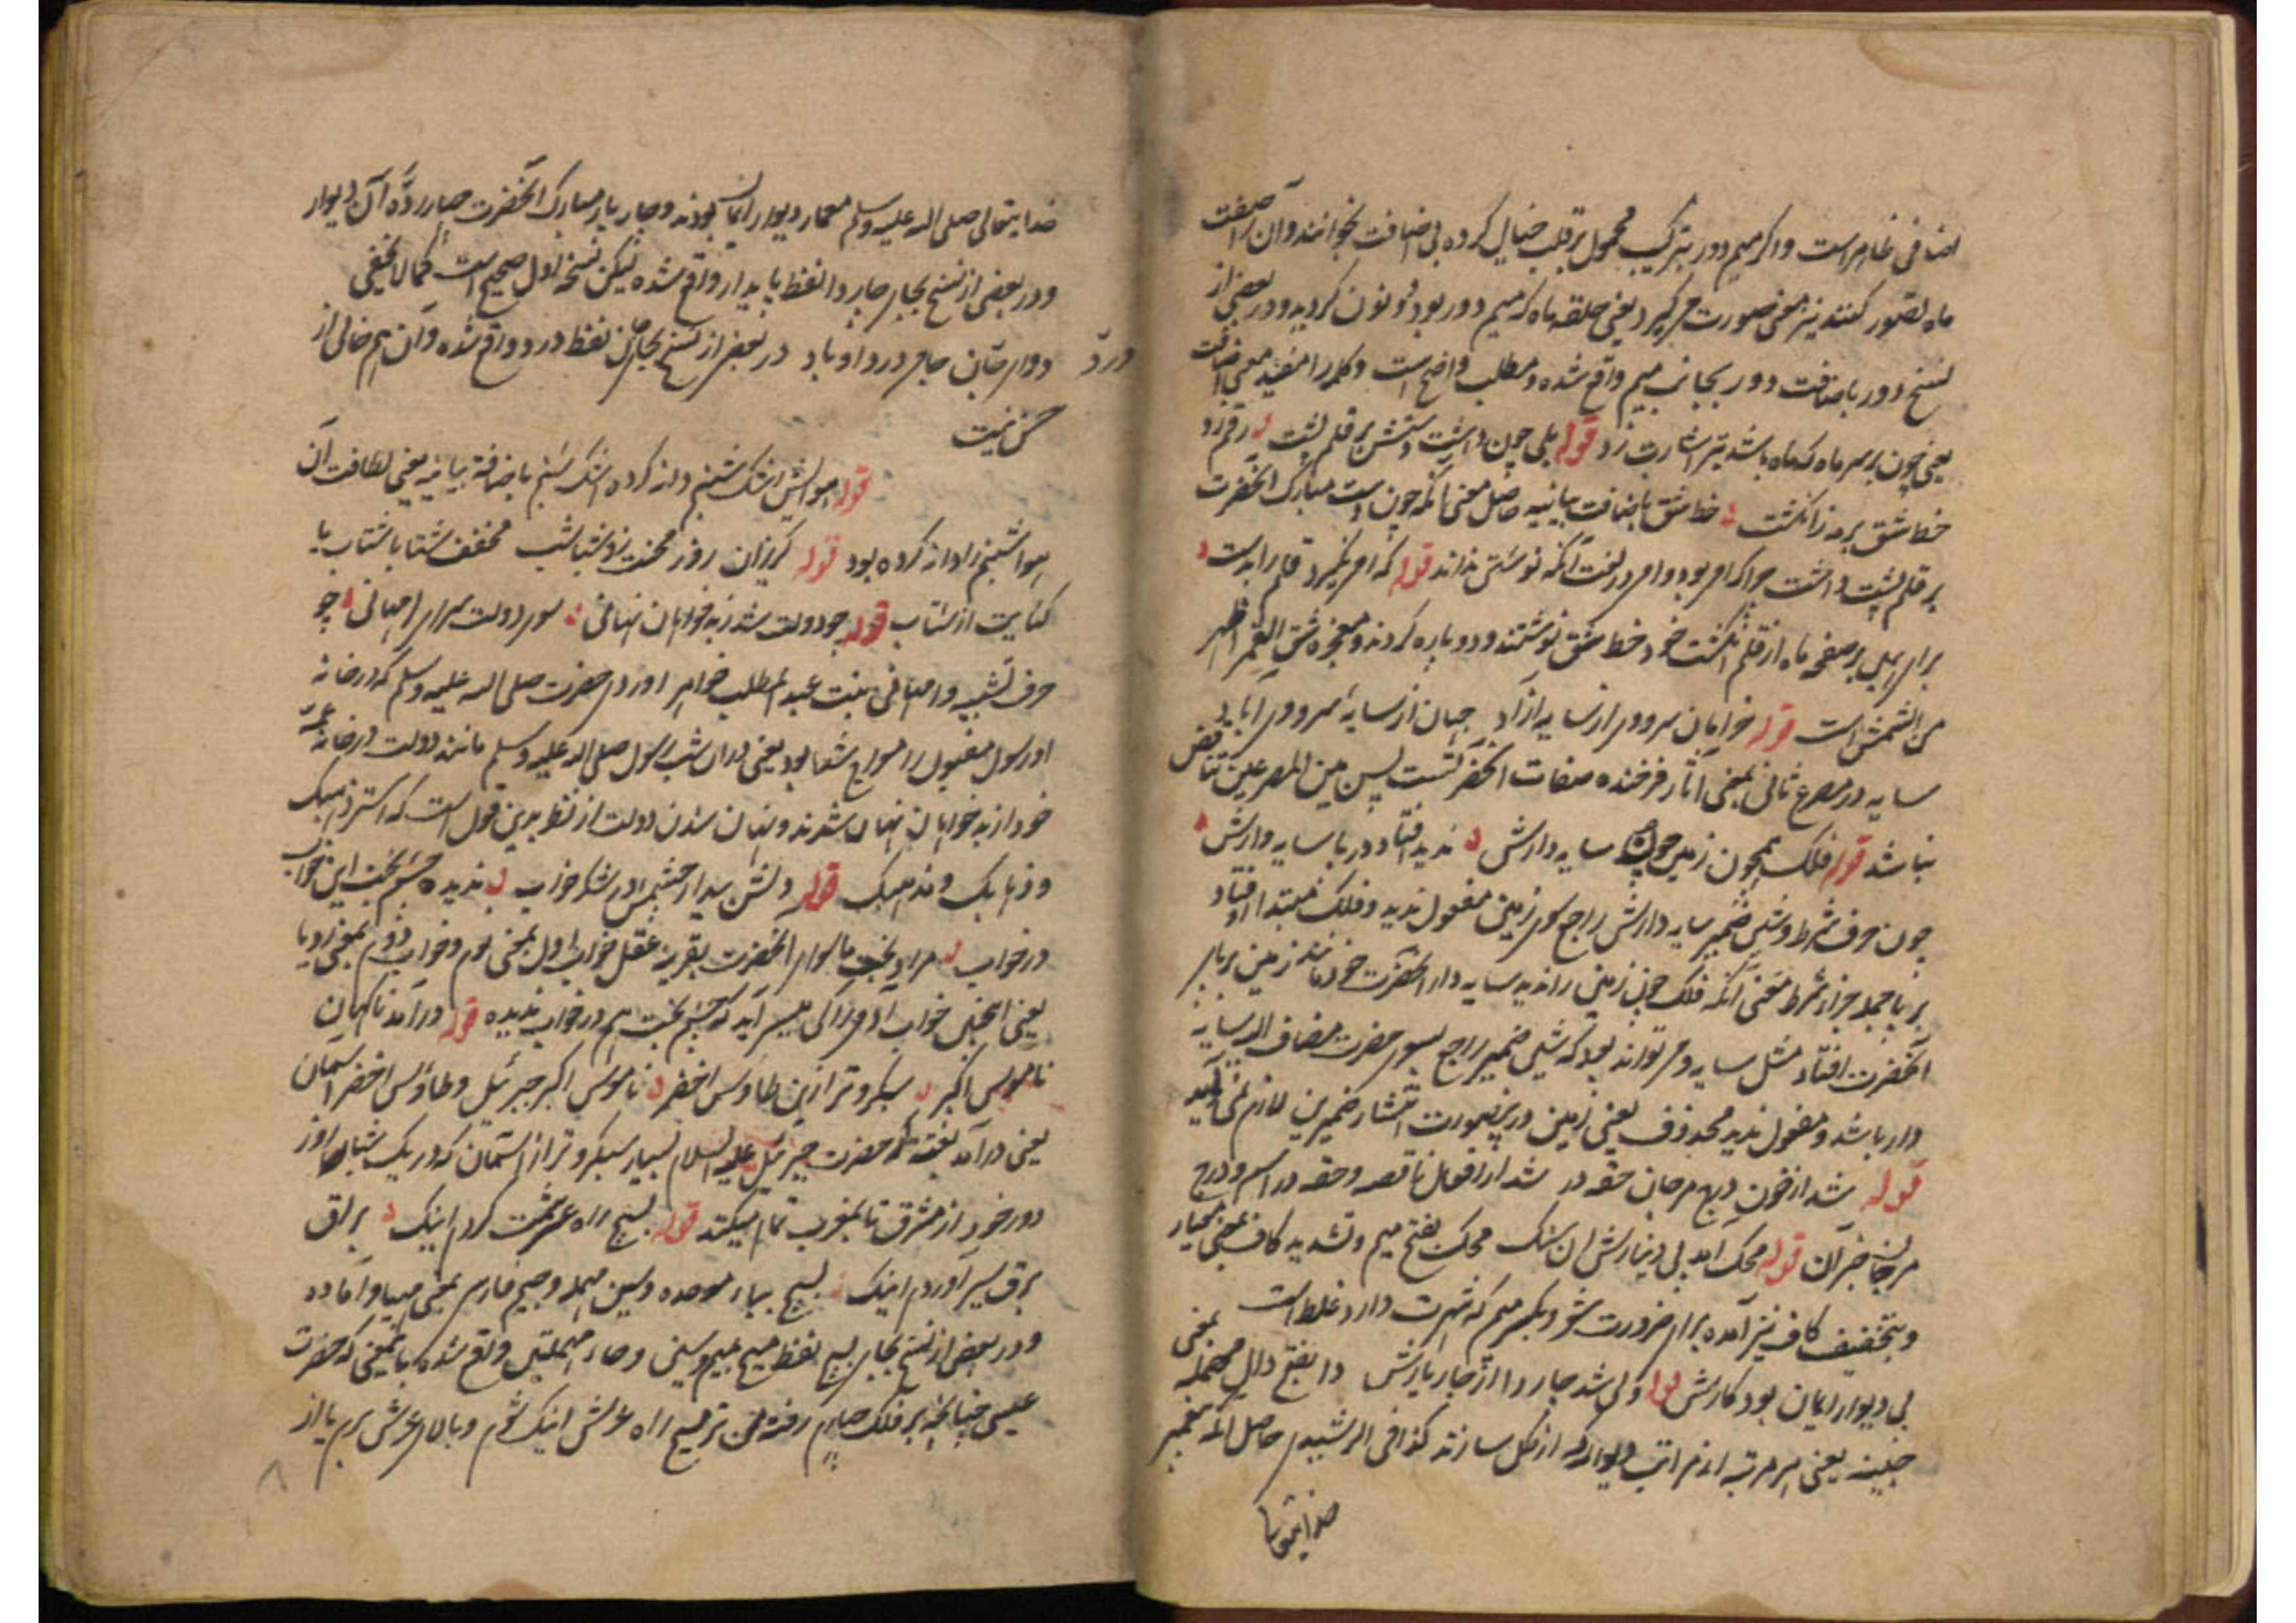 اضافی ظاهر است و اگر میم دور بترکیب محمول بر قلب خیال کرده بی اضافت بخوانند و آن را صفت
ماه تصور کنند نیز معنی صورت میگیرد یعنی حلقه ماه که میم دور بود دو نون گردید و در بعضی از
نسخ دور باضافت دور بجانب میم واقع شده و مطلب واضح است و کلمه را مفید معنی اضافت
یعنی چون بر سر ماه که ماه باشد تیر اشارت زد قوله بلی چون داشت دستش بر قلم پشت رقم زد
خط شق بر مه ز انگشت خط شق باضافت بیانیه حاصل معنی آنکه چون دست مبارک آنحضرت
بر قلم پشت داشت چرا که امی بود و امی در لغت آنکه نوشتن نداند قوله که امی نگیرد قلم را بدست
برای بلی بر صفحه ماه از قلم انگشت خود خط شق نوشتند و دو پاره کردند و معجزه شق القمر اظهر
من الشمس است قوله خرامان سروی از سایه آزاد جهان از سایه سرو وی آباد
سایه در مصرع ثانی بمعنی آثار فرخنده صفات آنحضرتست پس بین المصرعین تناقض
نباشد قوله فلک همچون زمین چون سایه دارش ندید افتاد در پا سایه وارش
چون حرف شرط و شین ضمیر سایه دارش راجع بسوی زمین مفعول ندید و فلک مبتدا افتاد
بر پا جمله جزاء شرط معنی آنکه فلک چون زمین را ندید سایه دار آنحضرت خود مانند زمین بر پای
آنحضرت افتاد مثل سایه و می تواند بود که شین ضمیر راجع بسوی حضرت مضاف الیه سایه
دار باشد و مفعول ندید محذوف یعنی زمین درینصورت انتشار ضمیرین لازم نمی آید
قوله شد از خون درج مرجان حقه در شد از افعال ناقصه و حقه در اسم و درج
مرجان خبر آن قوله محک آمد پی دینارش آن سنگ محک بفتح میم و تشدید کاف بمعنی معیار
و بتخفیف کاف نیز آمده برای ضرورت شعر و بکسر میم که شهرت دارد غلط است
پی دیوار ایمان بود کارش ولی شد چار دا از چار یارش دا بفتح دال مهمله بمعنی
چینه یعنی هر مرتبه از مراتب دیوار که از گل سازند کذا فی الرشیدی حاصل آنکه پیغمبر
خدایتعالی
خدایتعالی صلی الله علیه وسلم معمار دیوار ایمان بودند و چار یار مبارک آنحضرت چار رده آن دیوار
و در بعضی از نسخ بجای چار دا لفظ پایدار واقع شده لیکن نسخه اول صحیح است کمالا یخفی
درد دوای جان جامی درد او باد در بعضی از نسخ بجای جان لفظ درد واقع شده و آن هم خالی از
حسن نیست
قوله هوایش اشک شبنم دانه کرده اشک شبنم باضافة بیانیه یعنی لطافت آن
هوا شبنم را دانه کرده بود قوله گریزان روز محنت زو شتاشب مخفف شتابا شتاب یا
کنایت از شتاب قوله چو دولت شد ز بدخواهان نهانی سوی دولت سرای امهانی چو
حرف تشبیه و امهانی بنت عبد المطلب خواهر حضرت صلی الله علیه وسلم که در خانه
او رسول مقبول را معراج شما بود یعنی دران شب رسول صلی الله علیه وسلم مانند دولت در خانه عمه
خود از بدخواهان نهان شدند و نهان شدن دولت از نظر بدین قول است که استر ذهبک
و ذهابک و مذهبک قوله دلش بیدار چشمش در شکر خواب ندیده چشم بخت این خواب
در خواب مراد بخت ما سوای آنحضرت بقرینه عقل خواب اول بمعنی نوم و خواب دوم بمعنی رویا
یعنی اینچنین خواب آدمی را کی میسر آید که چشم بخت هم در خواب ندیده قوله درآمد ناگهان
ناموس اکبر سبکرو تر ازین طاؤس اخضر ناموس اکبر جبرئیل و طاؤس اخضر آسمان
یعنی درآمد بغتة که حضرت جبرئیل علیه السلام بسیار سبکرو تر از آسمان که در یک شبانه روز
دور خود از مشرق تا بمغرب تمام میکند قوله بسیج راه عرشت کردم اینک براق
برق سیر آوردم اینک بسیج بباء موحده و سین مهمله و جیم فارسی بمعنی مهیا و آماده
و در بعضی از نسخ بجای بسیج لفظ مسیح بمیم و سین و حاء مهملتین واقع شده باینمعنی که حضرت
عیسی چنانچه بر فلک چهارم رفته من ترا مسیح راه عرش اینک شوم و بالای عرش برم یا از
۸